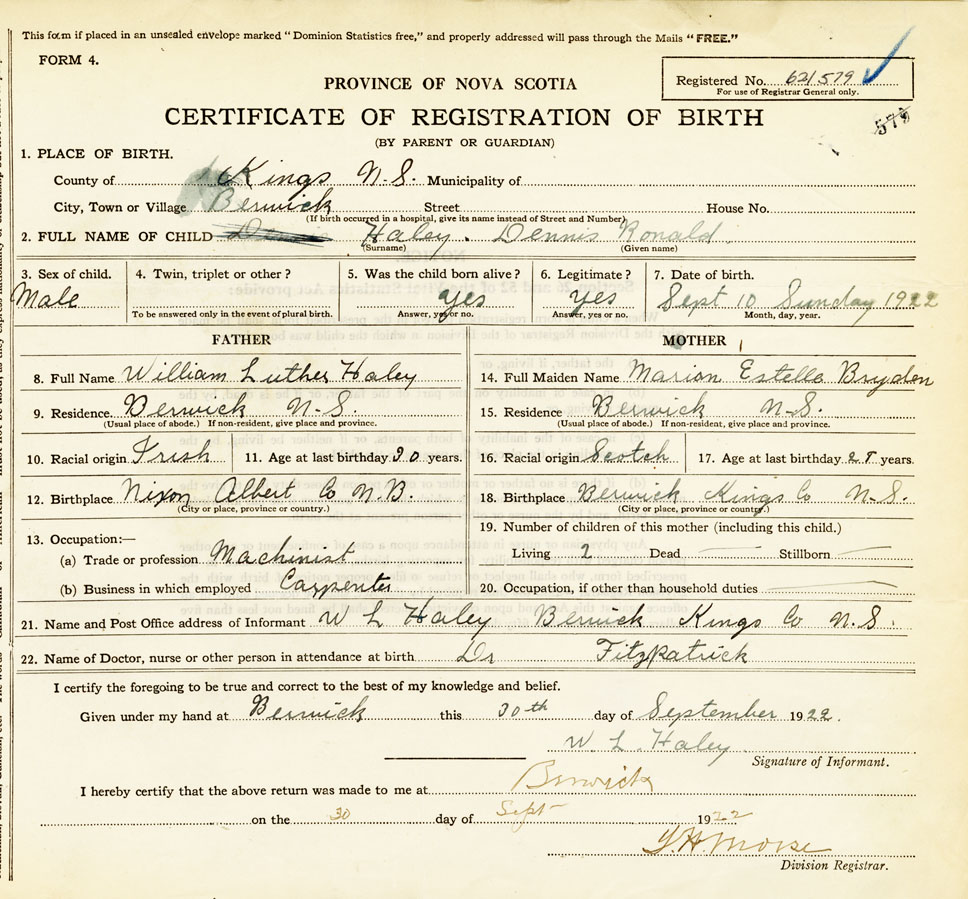 This form if placed in an unsealed envelope marked "Dominion Statistics free," and properly addressed will pass through the Mails "FREE."
FORM 4.
PROVINCE OF NOVA SCOTIA
Registered No. 621579
For use of Registrar General only.
CERTIFICATE OF REGISTRATION OF BIRTH
578
(BY PARENT OR GUARDIAN)
1. PLACE OF BIRTH.
County of Kings N.S. Municipality of
City, Town or Village Berwick Street House No.
(If birth occurred in a hospital, give its name instead of Street and Number)
2. FULL NAME OF CHILD Haley. Dennis Ronald
(Surname) (Given name)
3. Sex of child. 4. Twin, triplet or other? 5. Was the child born alive? 6. Legitimate? 7. Date of birth.
Male yes yes Sept 10 Sunday 1922
To be answered only in the event of plural birth. Answer, yes or no. Answer, yes or no. Month, day, year.
FATHER MOTHER
8. Full Name William Luther Haley 14. Full Maiden Name Marion Estella Bryden
9. Residence. Berwick N-S. 15. Residence Berwick N-S.
(Usual place of abode.) If non-resident, give place and province. (Usual place of abode.) If non-resident, give place and province.
10. Racial origin Irish 11. Age at last birthday 30 years. 16. Racial origin Scotch 17. Age at last birthday 28 years.
12. Birthplace Nixon Albert Co N.B. 18. Birthplace Berwick Kings Co N-S.
(City or place, province or country.) (City or place, province or country.)
13. Occupation:— 19. Number of children of this mother (including this child.)
(a) Trade or profession Machinist Living 2 Dead — Stillborn —
(b) Business in which employed Carpenter 20. Occupation, if other than household duties —
21. Name and Post Office address of Informant W L Haley Berwick Kings Co N.S.
22. Name of Doctor, nurse or other person in attendance at birth Dr Fitzpatrick
I certify the foregoing to be true and correct to the best of my knowledge and belief.
Given under my hand at Berwick this 30th day of September 1922.
W. L. Haley
Signature of Informant.
I hereby certify that the above return was made to me at Berwick
on the 30 day of Sept 1922
Morse
Division Registrar.